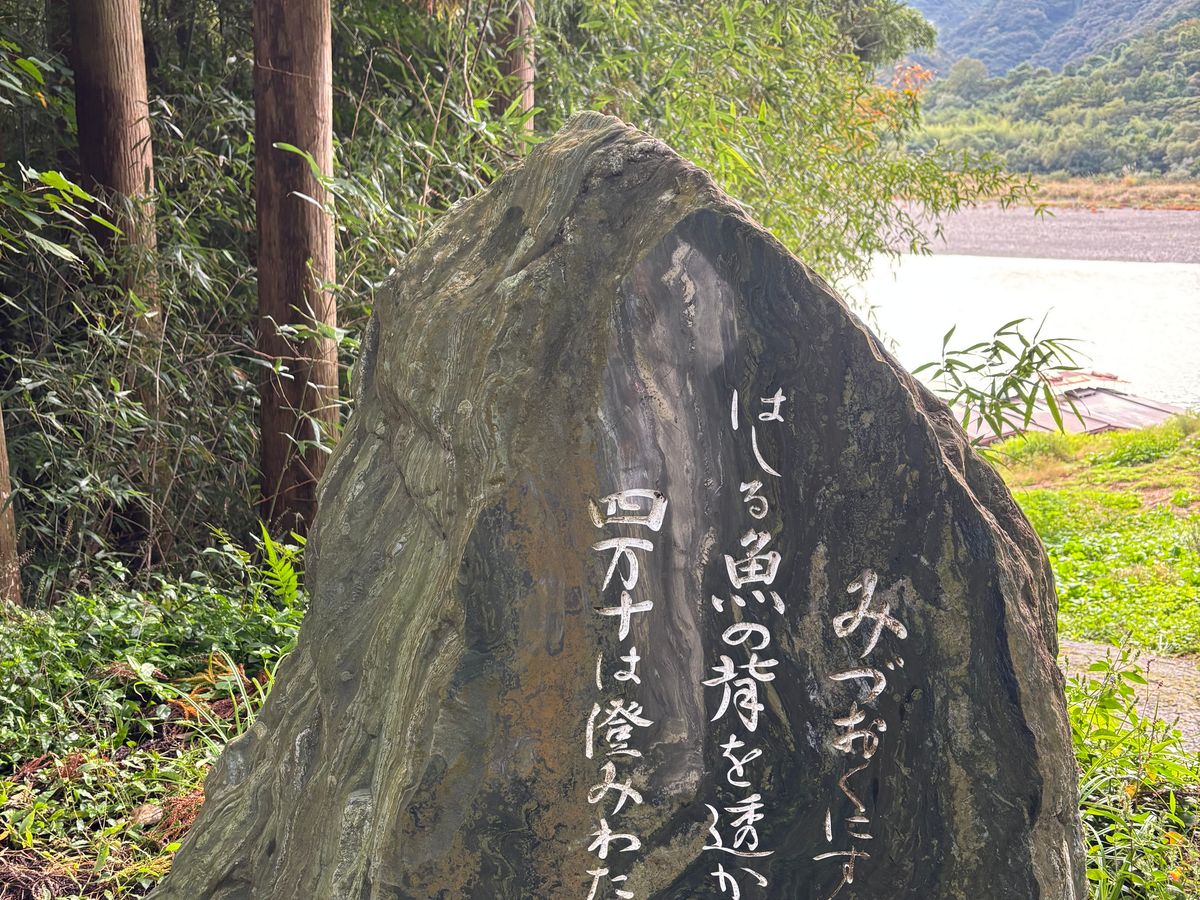 みづおくにす
はしる魚の背を透か
四万十は澄みわた